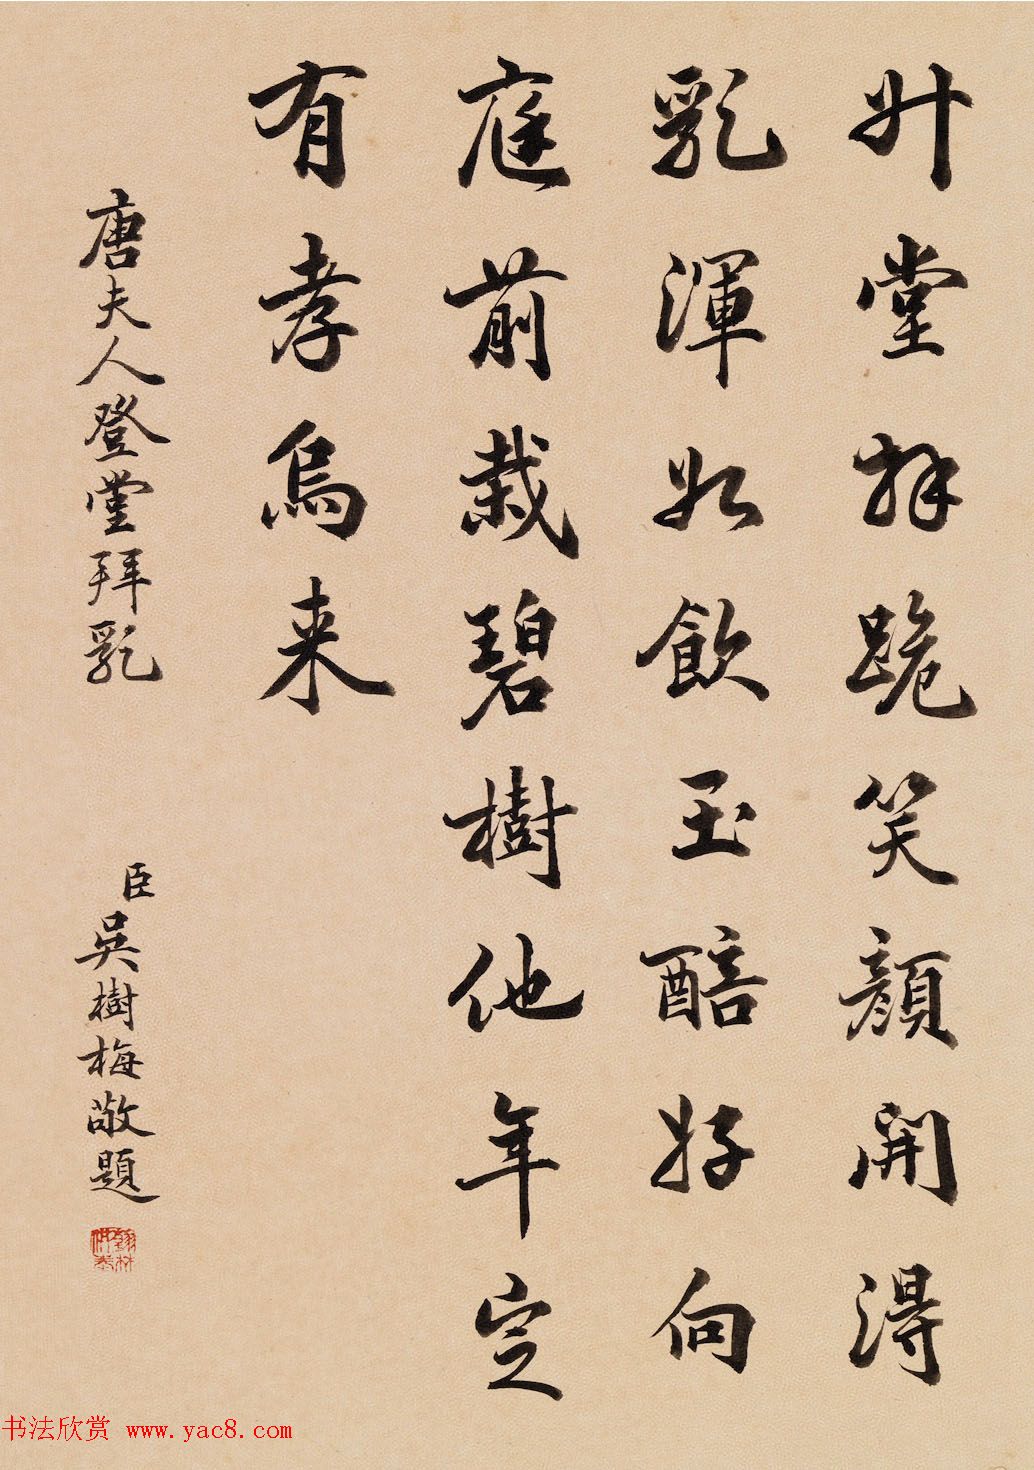 升堂拜跪笑顏開得
乳渾如飲玉醅好向
庭前栽碧樹他年定
有孝烏来
唐夫人登堂拜乳
臣吳樹梅敬題
书法欣赏 www.yac8.com